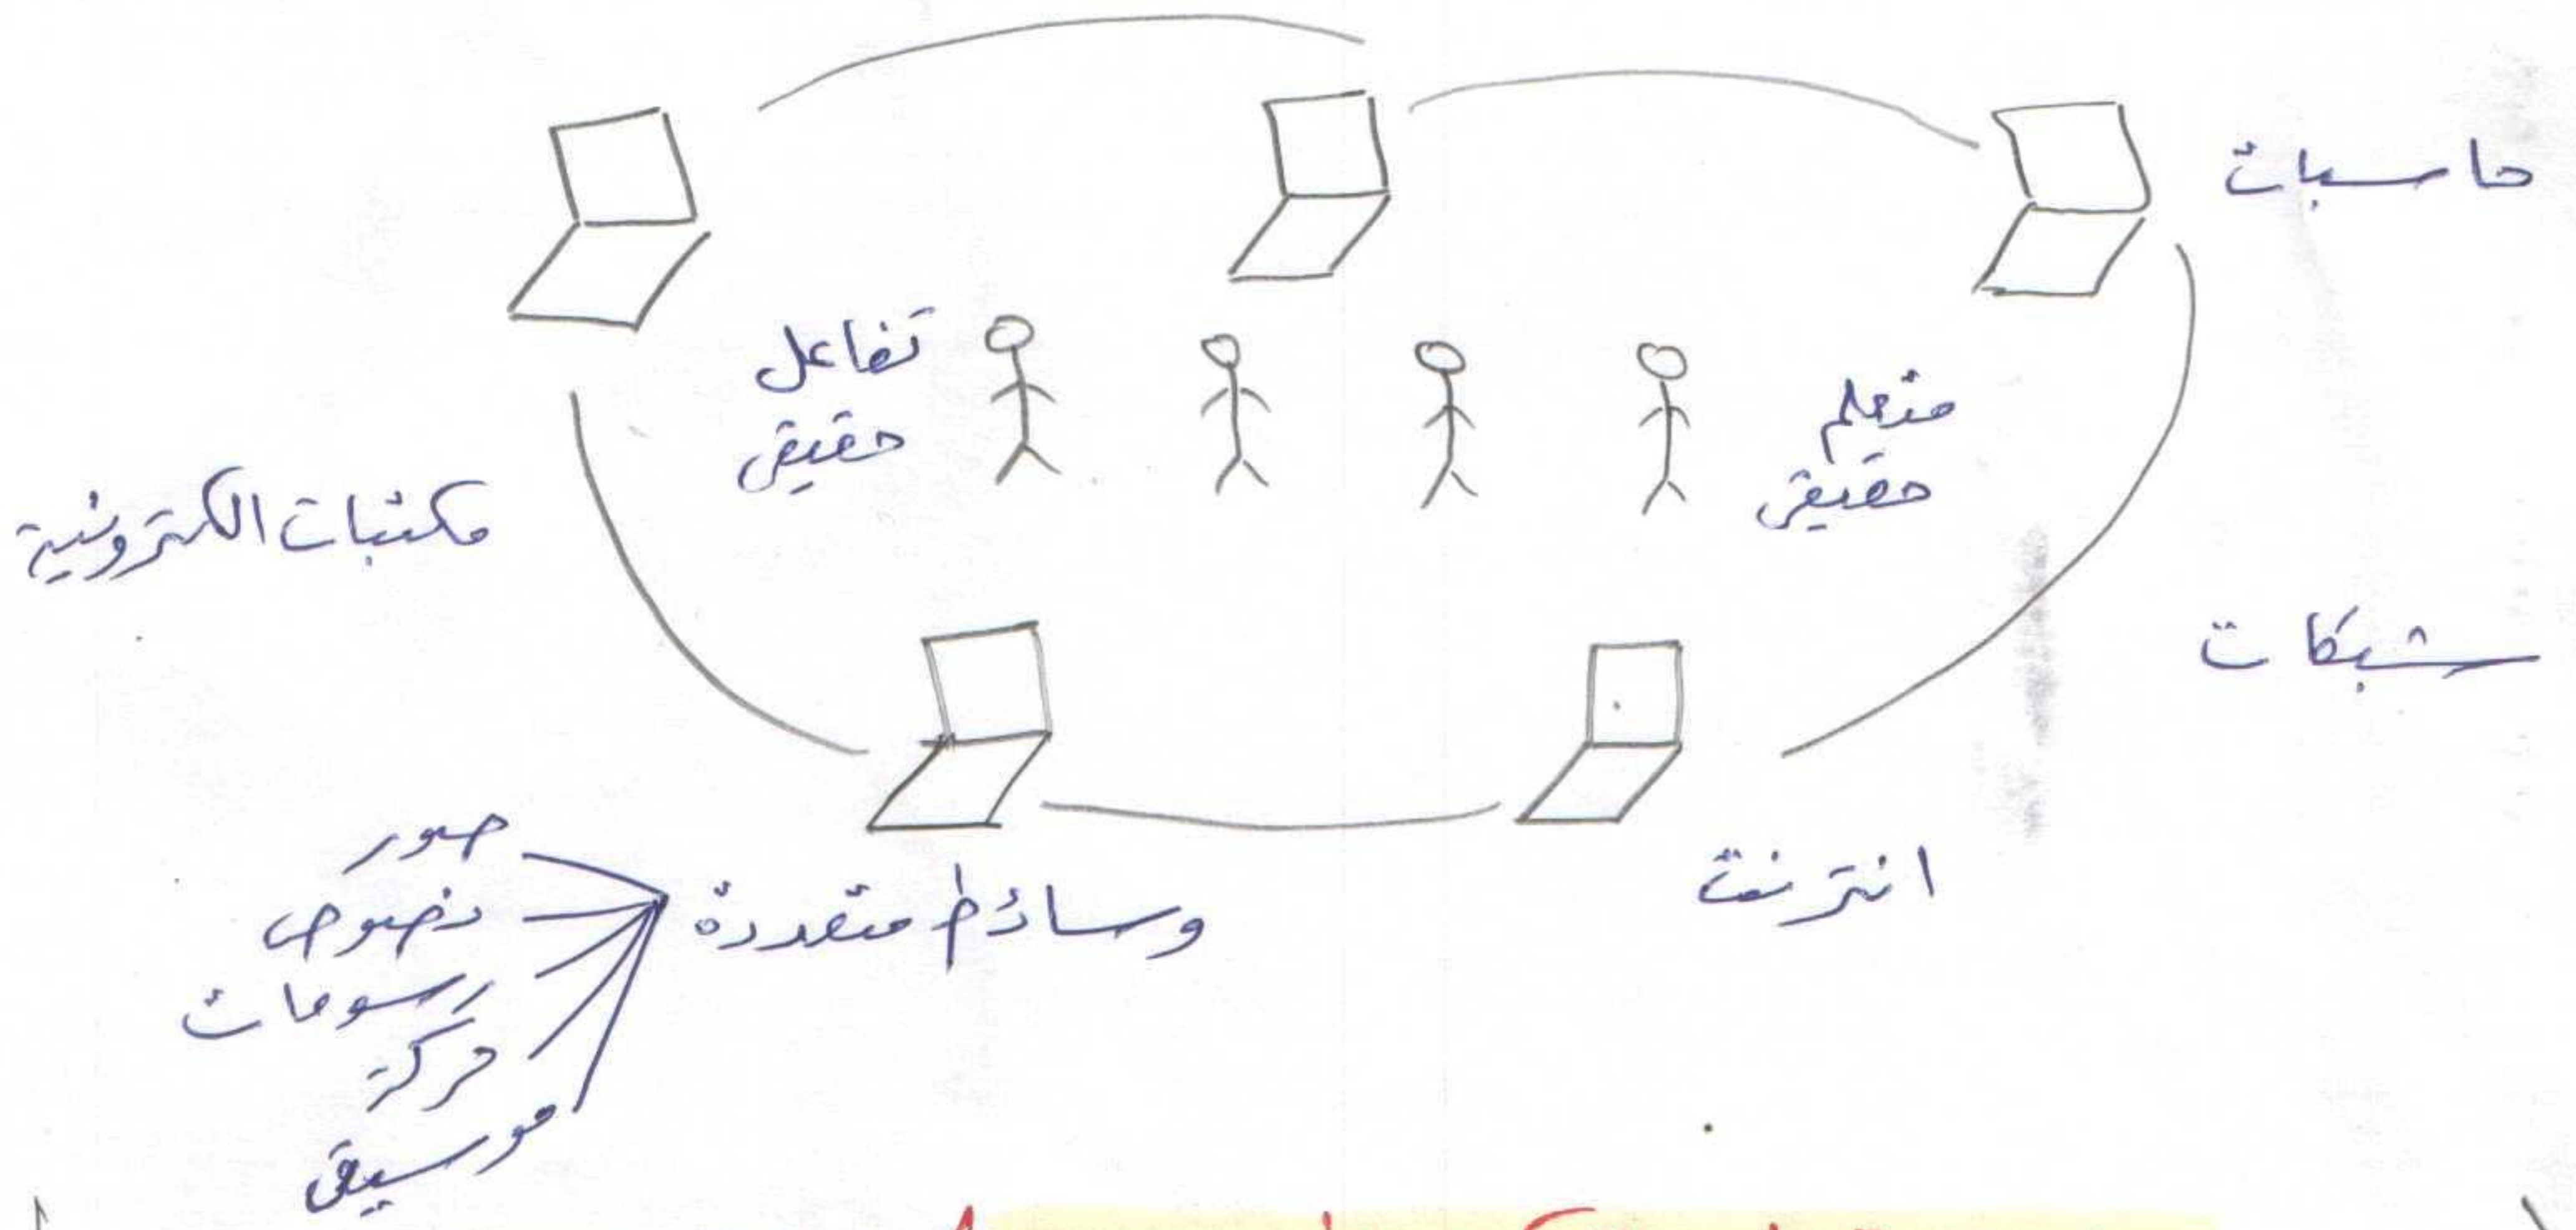 حاسبات
تفاعل
حقيقى
متعلم
حقيقى
مكتبات الكترونية
شبكات
انترنت
وسائط متعددة
صور
نصوص
رسومات
حركة
موسيقى